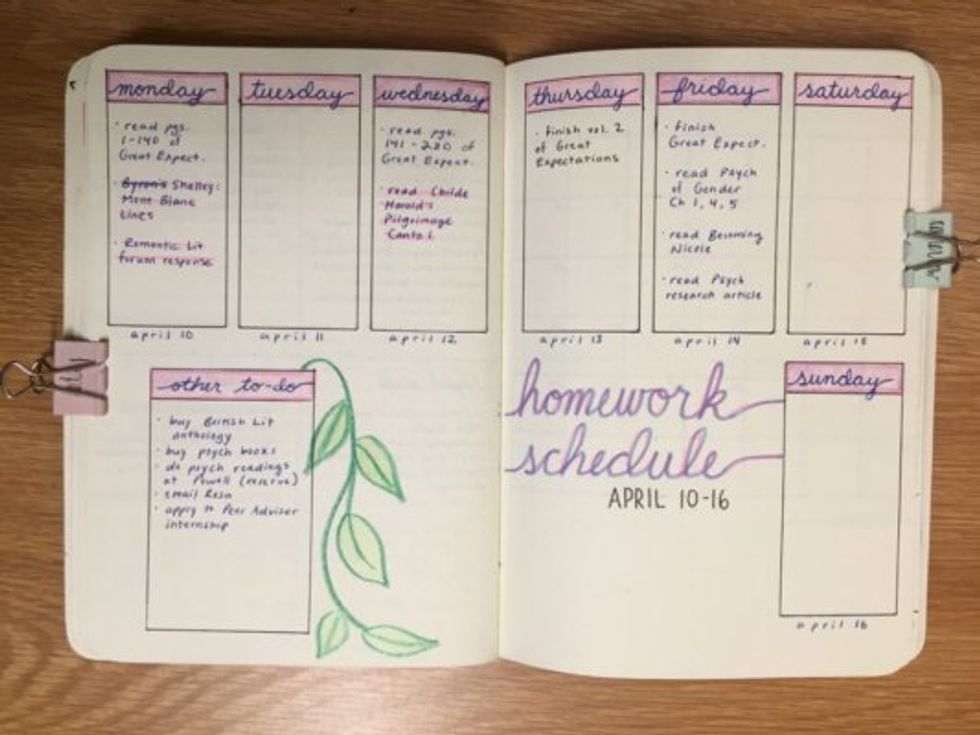 monday
· read pgs.
1-140 of
Great Expect.
· Byron's Shelley:
Mont Blanc
Lines
· Romantic Lit
forum response
april 10
tuesday
april 11
wednesday
· read pgs.
141-280 of
Great Expect.
· read Childe
Harold's
Pilgrimage
Canto 1
april 12
thursday
· finish vol. 2
of Great
Expectations
april 13
friday
· finish
Great Expect.
· read Psych
of Gender
Ch 1, 4, 5
· read Becoming
Nicole
· read Psych
research article
april 14
saturday
april 15
other to-do
· buy British Lit
anthology
· buy psych books
· do psych readings
at Powell (reserve)
· email
· apply to Peer Advisor
internship
homework
schedule
APRIL 10-16
sunday
april 16